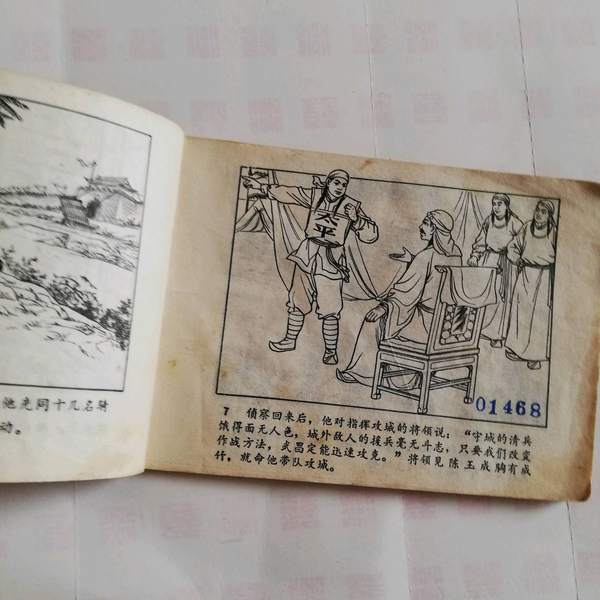 他先同十几名骑
动。
太
平
01468
7 侦察回来后，他对指挥攻城的将领说：“守城的清兵
饿得面无人色，城外敌人的援兵毫无斗志，只要我们改变
作战方法，武昌定能迅速攻克。”将领见陈玉成胸有成
竹，就命他带队攻城。